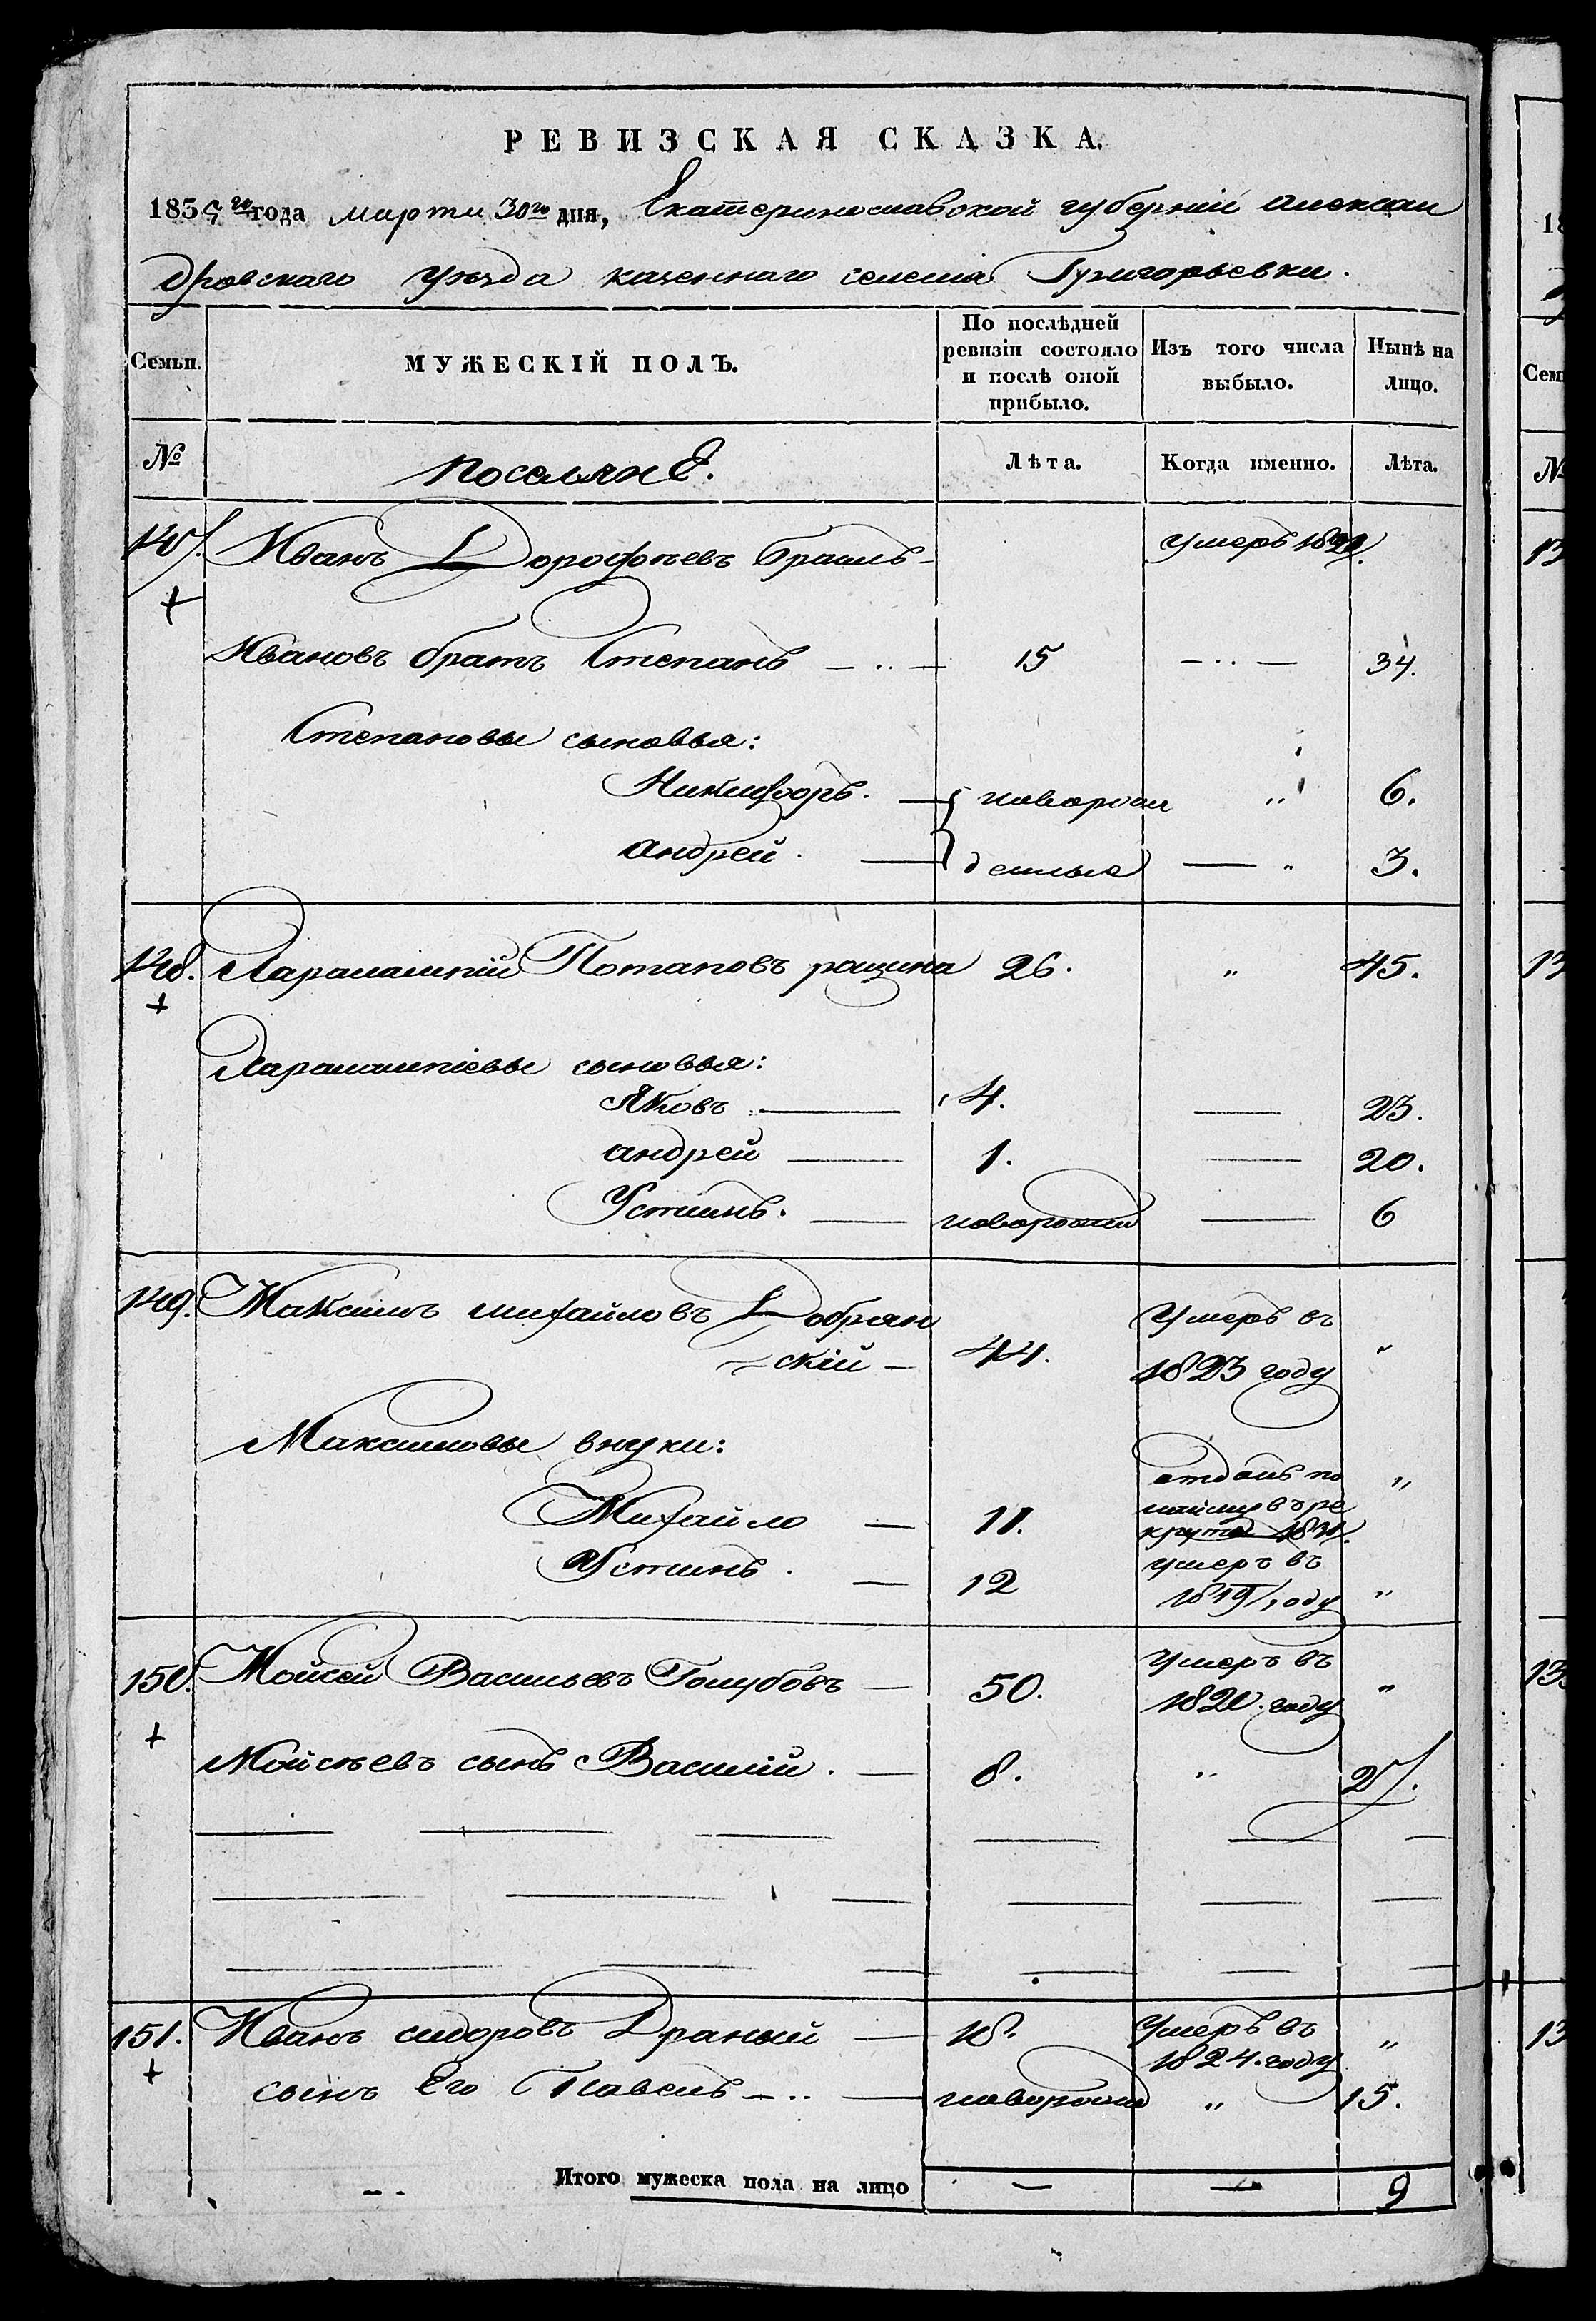 РЕВИЗСКАЯ СКАЗКА.
1835 го года марта 30го дня, Екатеринославской губерніи Алексан
дровскаго уѣзда казеннаго селенія Григорьевки.
Семьи. МУЖЕСКІЙ ПОЛЪ. По послѣдней ревизіи состояло и послѣ оной прибыло. Изъ того числа выбыло. Нынѣ на лицо.
№ поселянЕ. Лѣта. Когда именно. Лѣта.
147. Иванъ Дорофѣевъ умеръ
Ивановъ братъ Степанъ 15 34.
Степановы сыновья:
Никифоръ. новорож 6.
андрей. денные 3.
148. Харалампій Потаповъ рощина 26. " 45.
Харалампіевы сыновья:
Яковъ 4. 23.
андрей 1. 20.
Устинъ. новорож 6
149. Максимъ михайловъ Добрян
скій 44. Умеръ въ 1823 году "
Максимовы внуки:
Михайло 11. отданъ по найму въ ре круты 1831. "
Устинъ. 12 умеръ въ 1819 году "
150. Мойсей Васильевъ Голубовъ 50. Умеръ въ 1820. году "
Мойсѣевъ сынъ Василій. 8. " 27.
151. Иванъ сидоровъ Драный 18. Умеръ въ 1824. году "
сынъ Его Павелъ новорож " 15.
Итого мужеска пола на лицо 9